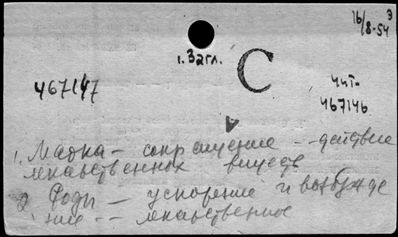 16/8-54 Э
1. 32гл.
С
467147
чит.
467146
1. Матка - сокращение - действие
лекарственных веществ
2 Роды - ускорение и возбужде
ние - лекарственное